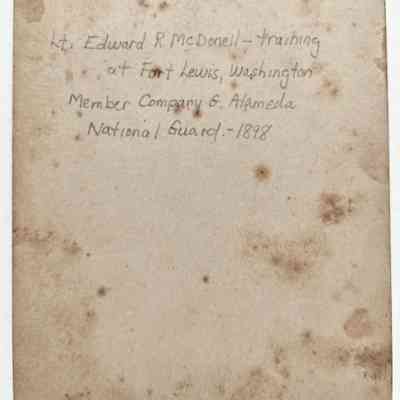 Lt. Edward R McDonell - training
at Fort Lewis, Washington
Member Company G. Alameda
National Guard. - 1898